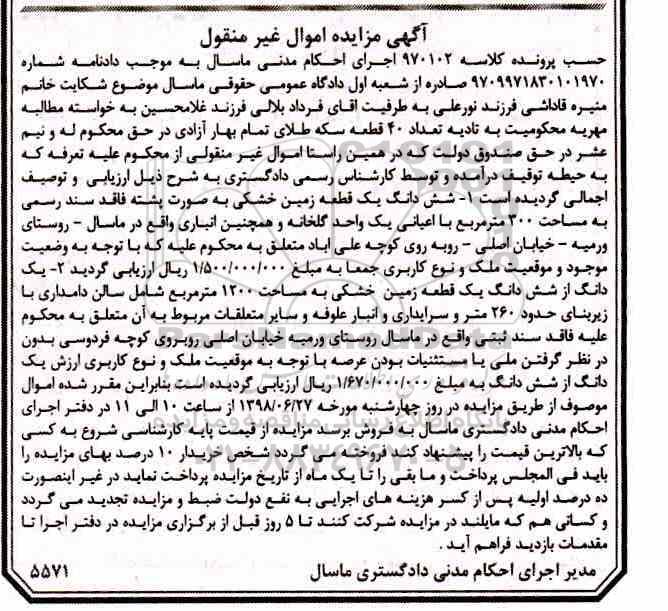 آگهی مزایده اموال غیر منقول
حسب پرونده کلاسه ۹۷۰۱۰۲ اجرای احکام مدنی ماسال به موجب دادنامه شماره
۹۷۰۹۹۷۱۸۳۰۱۰۱۹۷۰ صادره از شعبه اول دادگاه عمومی حقوقی ماسال موضوع شکایت خانم
منیره قاداشی فرزند نورعلی به طرفیت اقای فرداد بلالی فرزند غلامحسین به خواسته مطالبه
مهریه محکومیت به تادیه تعداد ۴۰ قطعه سکه طلای تمام بهار آزادی در حق محکوم له و نیم
عشر در حق صندوق دولت که در همین راستا اموال غیر منقولی از محکوم علیه تعرفه که
به حیطه توقیف درآمده و توسط کارشناس رسمی دادگستری به شرح ذیل ارزیابی و توصیف
اجمالی گردیده است ۱- شش دانگ یک قطعه زمین خشکی به صورت پشته فاقد سند رسمی
به مساحت ۳۰۰ مترمربع با اعیانی یک واحد گلخانه و همچنین انباری واقع در ماسال - روستای
ورمیه - خیابان اصلی - روبه روی کوچه علی اباد متعلق به محکوم علیه که با توجه به وضعیت
موجود و موقعیت ملک و نوع کاربری جمعا به مبلغ ۱/۵۰۰/۰۰۰/۰۰۰ ریال ارزیابی گردید ۲- یک
دانگ از شش دانگ یک قطعه زمین خشکی به مساحت ۱۲۰۰ مترمربع شامل سالن دامداری با
زیربنای حدود ۲۶۰ متر و سرایداری و انبار علوفه و سایر متعلقات مربوط به آن متعلق به محکوم
علیه فاقد سند ثبتی واقع در ماسال روستای ورمیه خیابان اصلی روبروی کوچه فردوسی بدون
در نظر گرفتن ملی یا مستثنیات بودن عرصه با توجه به موقعیت ملک و نوع کاربری ارزش یک
دانگ از شش دانگ به مبلغ ۱/۶۷۰/۰۰۰/۰۰۰ ریال ارزیابی گردیده است بنابراین مقرر شده اموال
موصوف از طریق مزایده در روز چهارشنبه مورخه ۱۳۹۸/۰۶/۲۷ از ساعت ۱۰ الی ۱۱ در دفتر اجرای
احکام مدنی دادگستری ماسال به فروش برسد مزایده از قیمت پایه کارشناسی شروع به کسی
که بالاترین قیمت را پیشنهاد کنند فروخته می گردد شخص خریدار ۱۰ درصد بهای مزایده را
باید فی المجلس پرداخت و ما بقی را تا یک ماه از تاریخ مزایده پرداخت نماید در غیر اینصورت
ده درصد اولیه پس از کسر هزینه های اجرایی به نفع دولت ضبط و مزایده تجدید می گردد
و کسانی هم که مایلند در مزایده شرکت کنند تا ۵ روز قبل از برگزاری مزایده در دفتر اجرا تا
مقدمات بازدید فراهم آید .
مدیر اجرای احکام مدنی دادگستری ماسال
۵۵۷۱